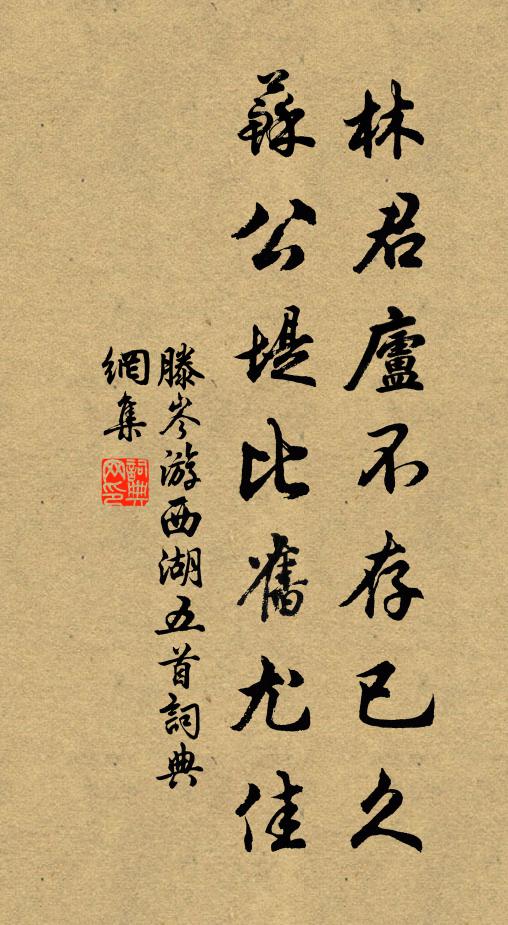 林君廬不存已久
蘇公堤比舊尤佳
滕岑游西湖五首詞典
網集
詞典
网印